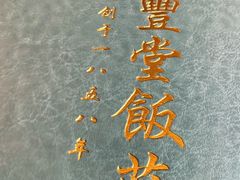 豐堂飯莊
创于一八五八年